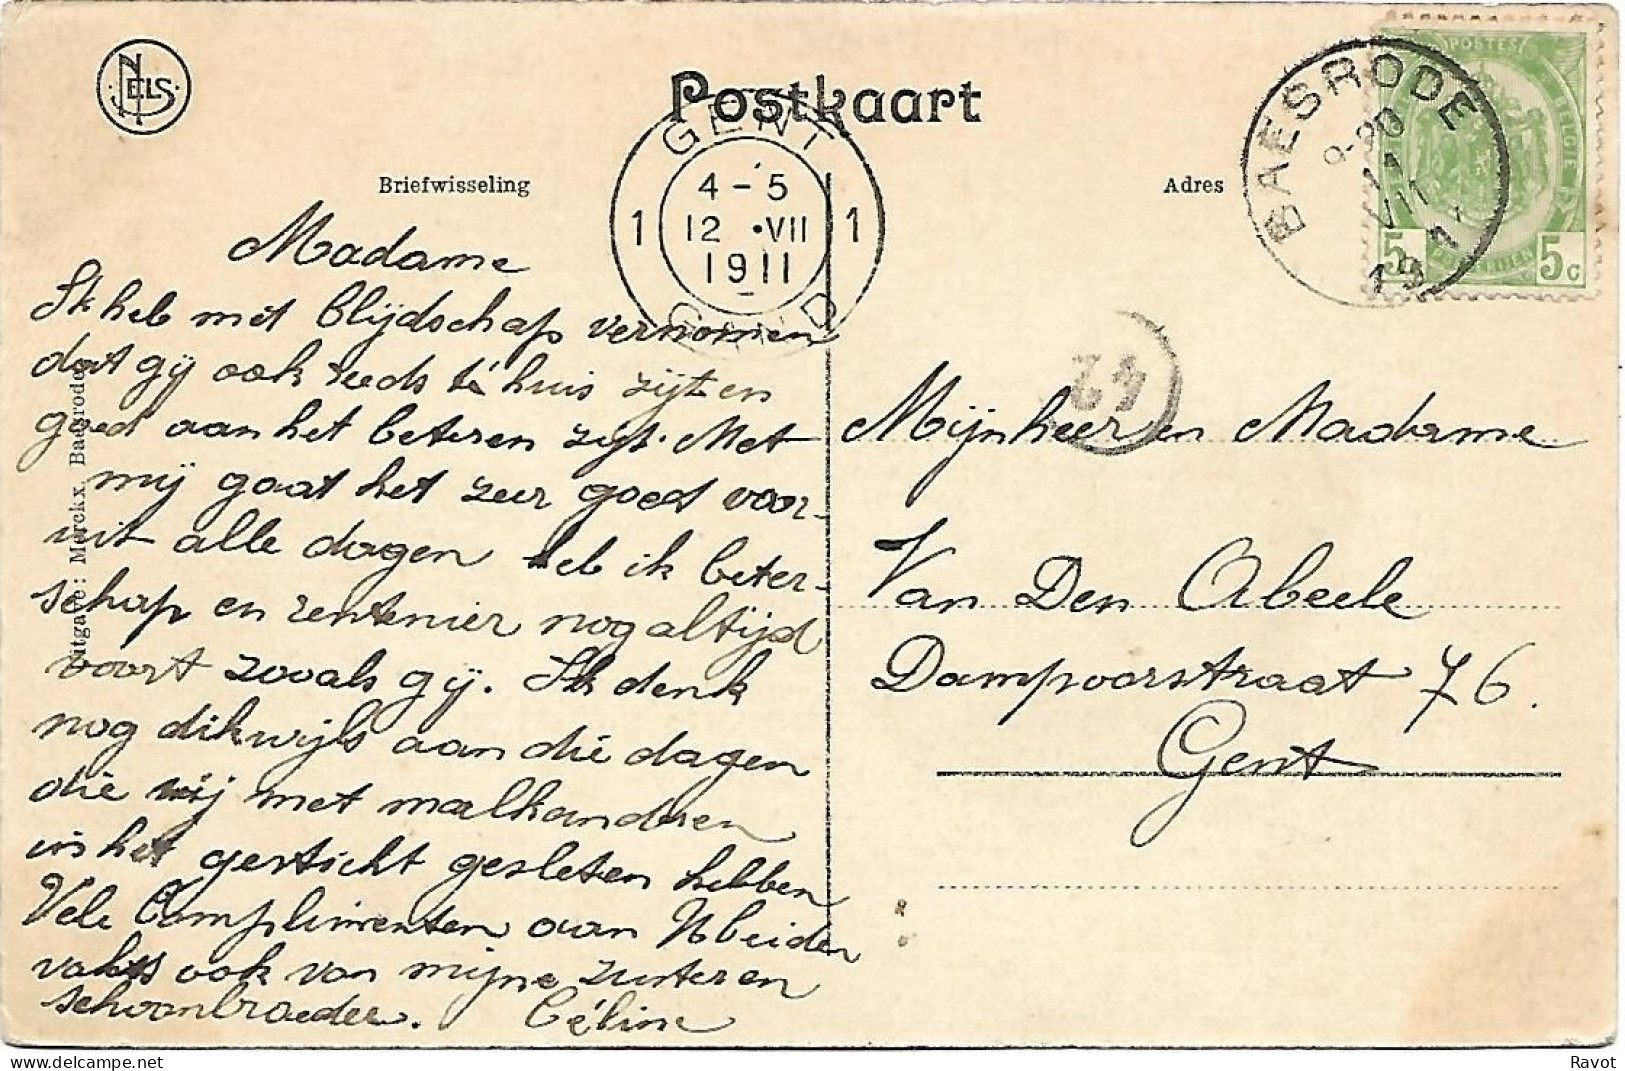 NELS
Postkaart
Briefwisseling
Adres
GENT
1 4-5 1
12 •VII
1911
GAND
BAESRODE
11
VII
19
POSTES
BELGIE
5 5c
42
Uitgave: Merckx Baesrode
Madame
Ik heb met blijdschap vernomen
dat gij ook reeds te huis zijt en
goed aan het beteren zijt. Met
mij gaat het zeer goed voor-
uit alle dagen heb ik beter-
schap en rentenier nog altijd
voort zooals gij. Ik denk
nog dikwijls aan die dagen
die wij met malkanderen
in het gesticht gesleten hebben
Vele Complimenten aan U beiden
ook van mijne zuster en
schoonbroeder. Céline
Mijnheer en Madame
Van Den Abeele
Dampoorstraat 76.
Gent
delcampe.net
Ravot